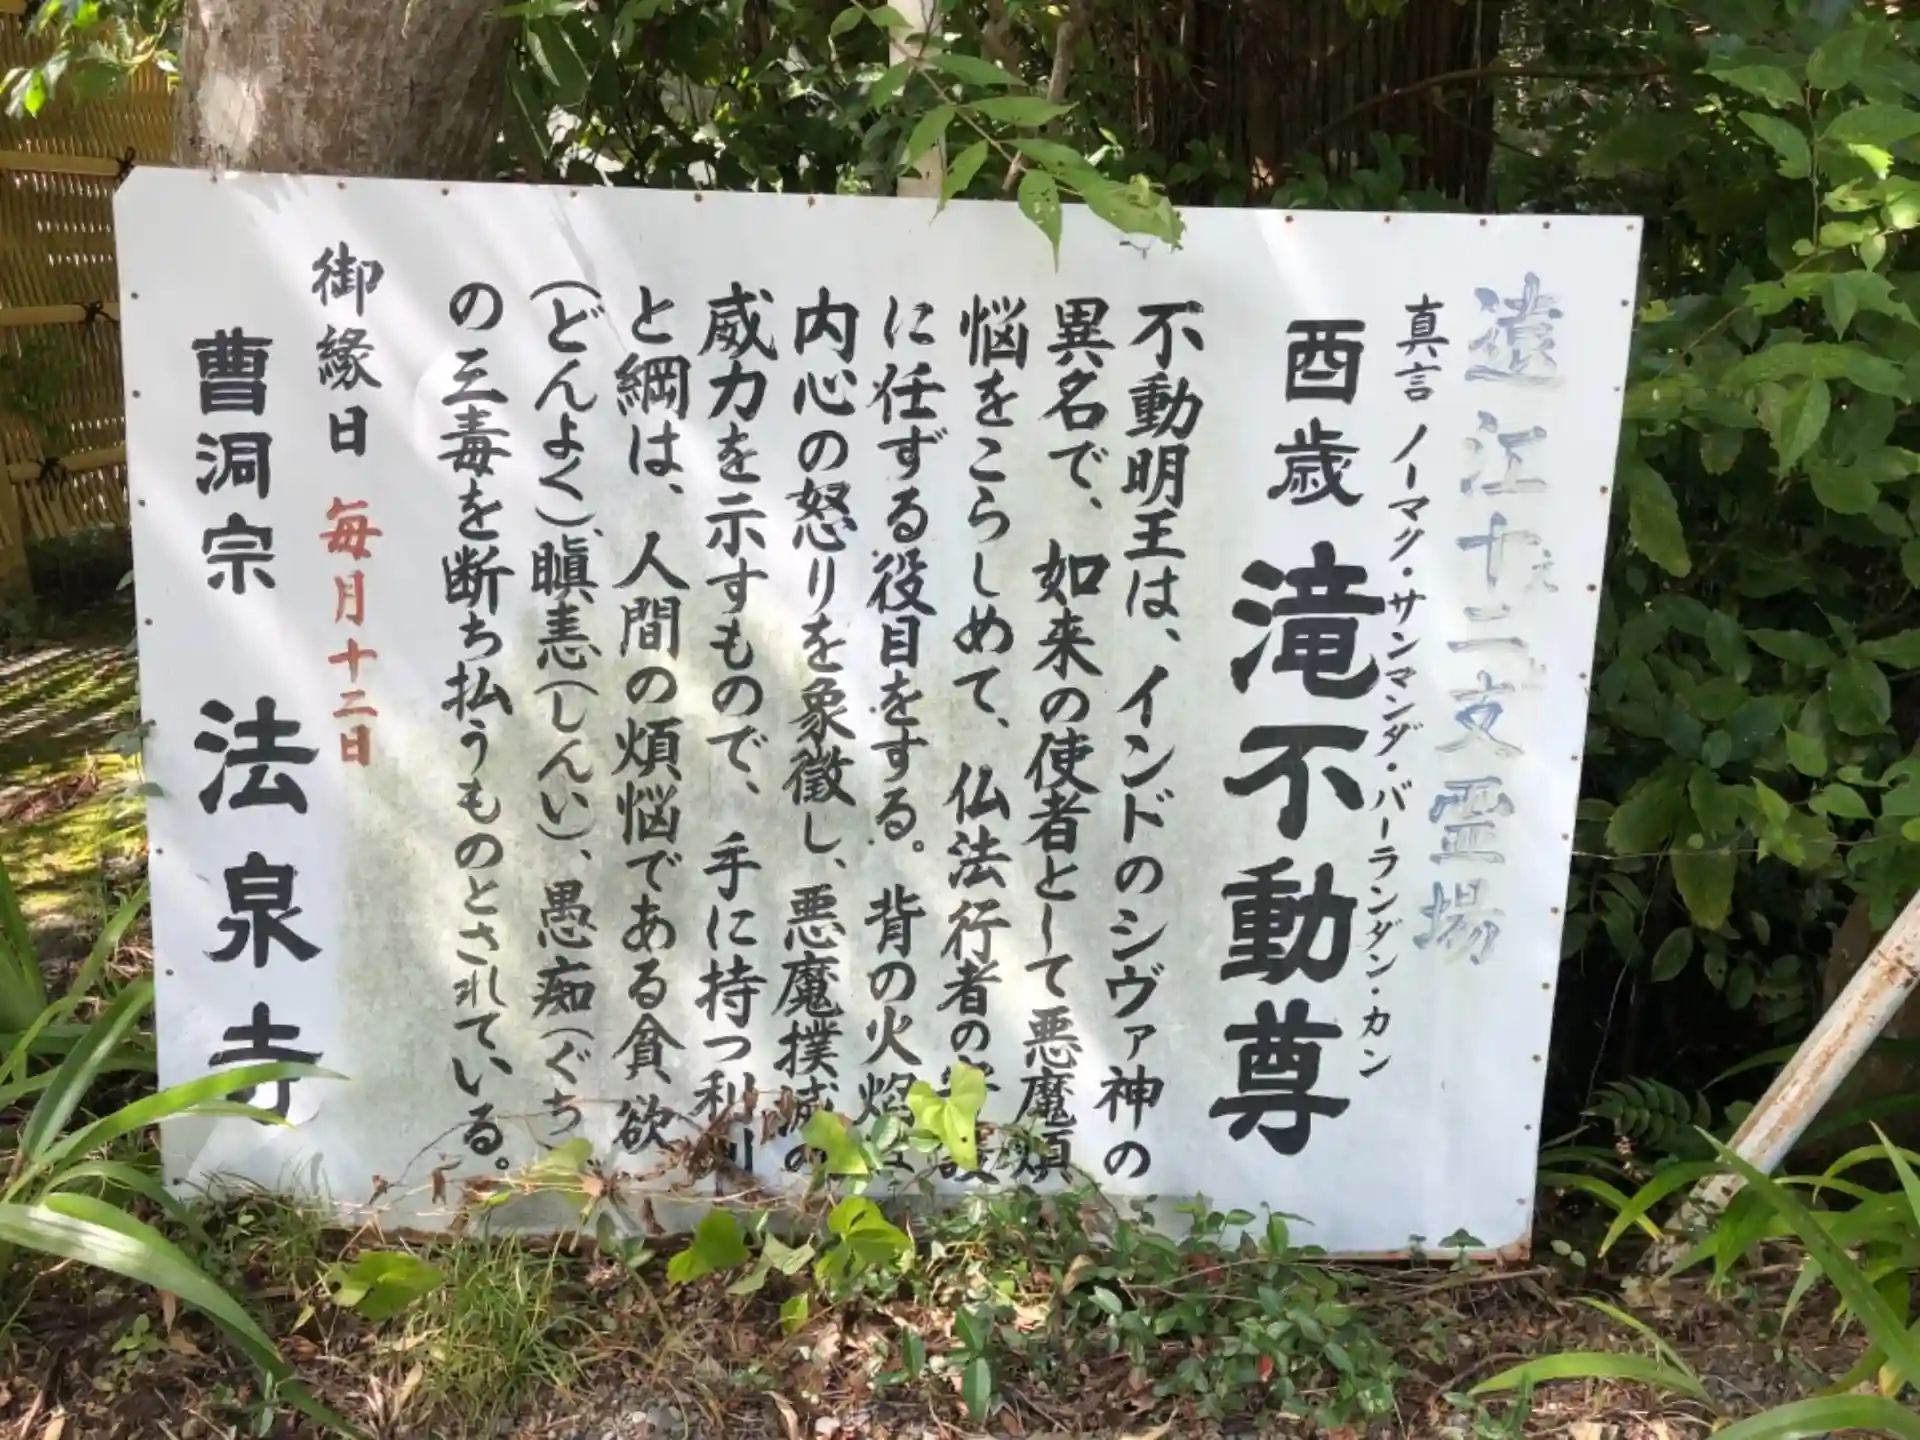 遠江十二支霊場
真言 ノーマク・サンマンダ・バーランダン・カン
酉歳 滝不動尊
不動明王は、インドのシヴァ神の
異名で、如来の使者として悪魔煩
悩をこらしめて、仏法行者の守護
に任ずる役目をする。背の火焔は
内心の怒りを象徴し、悪魔撲滅の
威力を示すもので、手に持つ利剣
と綱は、人間の煩悩である貪欲
(どんよく)、瞋恚(しんい)、愚痴(ぐち)
の三毒を断ち払うものとされている。
御縁日 毎月十二日
曹洞宗 法泉寺